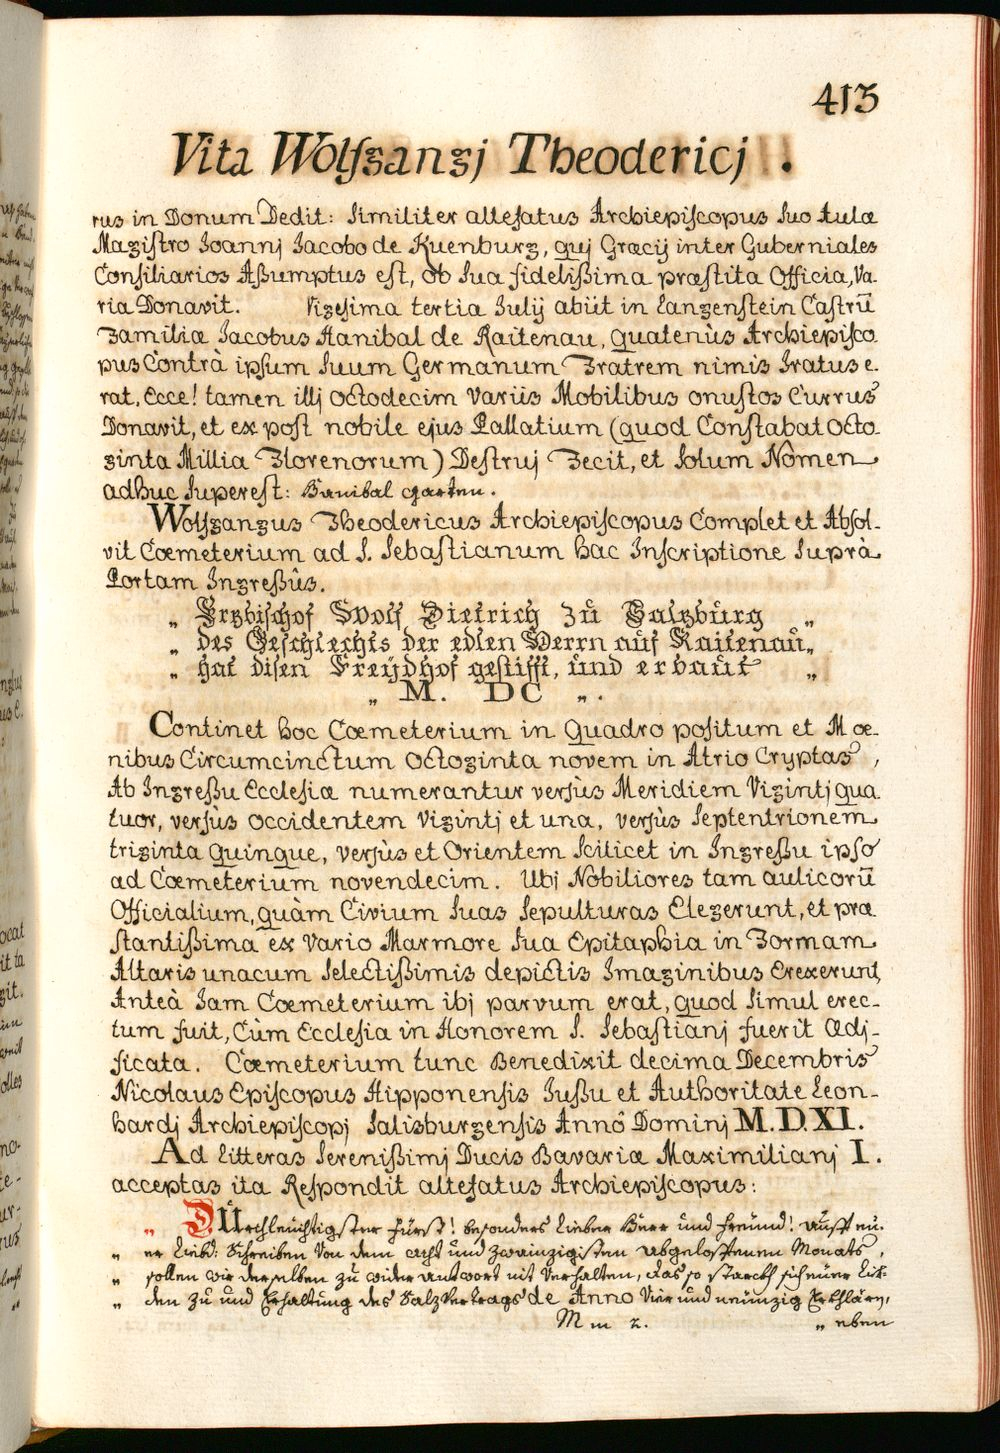 413
Vita Wolfgangj Theodericj .
rus in Donum Dedit: Similiter altefatus Archiepiscopus suo Aulæ
Magistro Joannj Jacobo de Kuenburg, quj Græcij inter Guberniales
Consiliarios Aßumptus est, ob sua fidelißima præstita Officia, Va-
ria Donavit. Vigesima tertia Julij abiit in Langenstein Castrū
Familiæ Jacobus Hanibal de Raitenau, quatenùs Archiepisco
pus Contrà ipsum suum Germanum Fratrem nimis Iratus e-
rat, Ecce! tamen illj octodecim Variis Mobilibus onustos Currus
Donavit, et ex post nobile ejus Pallatium (quod Constabat octo-
ginta Millia Florenorum) Destruj Fecit, et solum Nomen
adhuc superest: Hanibal garten.
Wolfgangus Theodericus Archiepiscopus Complet et Absol-
vit Cœmeterium ad S. Sebastianum hac Inscriptione suprà
Portam Ingreßûs.
„ Erzbischof Wolf Dietrich zu Salzburg „
„ des Geschlechts der edlen Herrn auf Raitenau „
„ hat disen Freijdhof gestifft, und erbaut „
„ M. DC „.
Continet hoc Cœmeterium in Quadro positum et Mœ-
nibus Circumcinctum octoginta novem in Atrio Cryptas,
Ab Ingreßu Ecclesiæ numerantur versùs Meridiem Vigintj qua
tuor, versùs occidentem Vigintj et una, versùs Septentrionem
triginta quinque, versùs et Orientem scilicet in Ingreßu ipso
ad Cœmeterium novendecim. Ubj Nobiliores tam aulicorū
Officialium, quàm Civium suas sepulturas Elegerunt, et præ
stantißima ex Vario Marmore sua Epitaphia in Formam
Altaris unacum selectißimis depictis Imaginibus Erexerunt,
Anteà Jam Cœmeterium ibj parvum erat, quod simul erec-
tum fuit, Cùm Ecclesia in Honorem S. Sebastianj fuerit ædj-
ficata. Cœmeterium tunc Benedixit decima Decembris
Nicolaus Episcopus Hipponensis Jußu et Authoritate Leon-
hardj Archiepiscopj Salisburgensis Annô Dominj M.D.XI.
Ad Litteras Serenißimj Ducis Bavariæ Maximilianj I.
acceptas ita Respondit altefatus Archiepiscopus:
„ Dürchleüchtigster Fürst! besonders Lieber Herr und Freünd! Auff eü-
„ er Liebd: Schreiben Von dem acht und zwainzigisten abgeloffenen Monats,
„ sollen wir derselben zu wider antwort nit Verhalten, das so starckh sich eüer Lieb-
„ den zu und Erhaltung des Salz Vertrags de Anno Vier und neünzig Erkhlären,
M m 2. „ eben